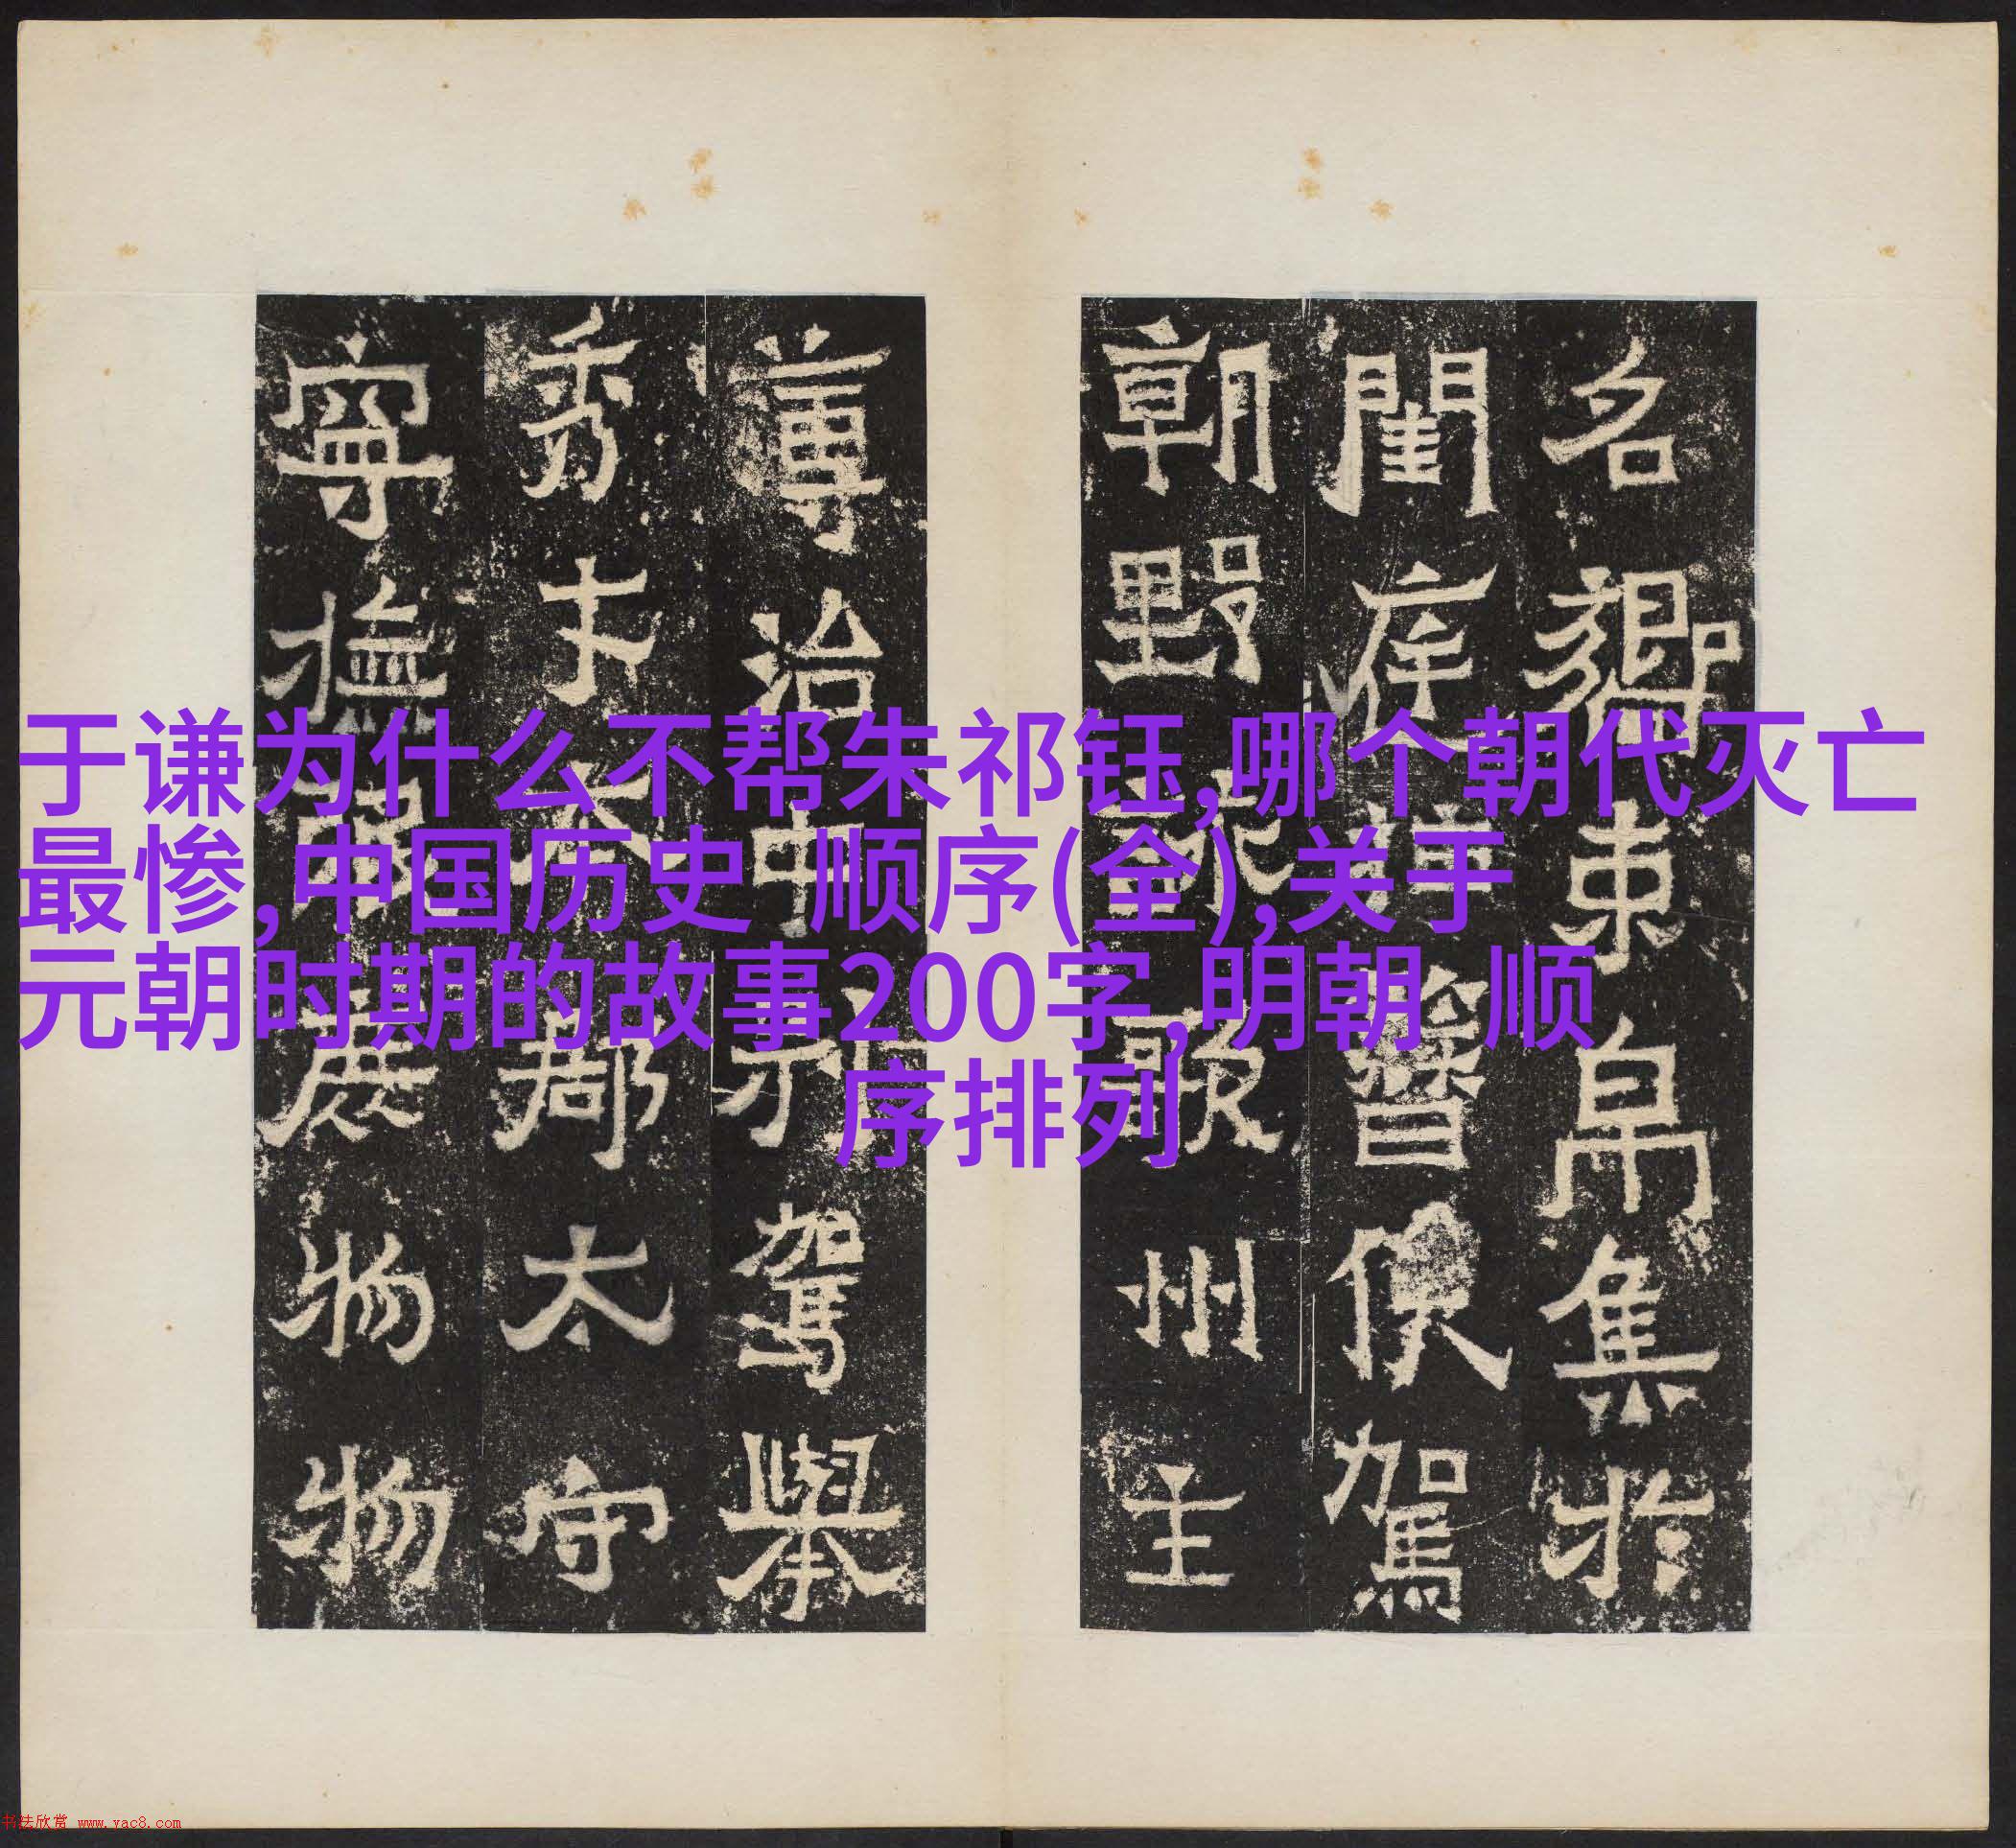 于谦为什么不帮朱祁钰,哪个朝代灭亡
最惨,中国历史 顺序(全),关于
元朝时期的故事200字,明朝 顺
序排列
名鄉束帛集於
閨庭譽俟駕
朝野歌州主
導治中別駕舉
秀才本郡太守
寧撫物物
书法欣赏 www.yac8.com